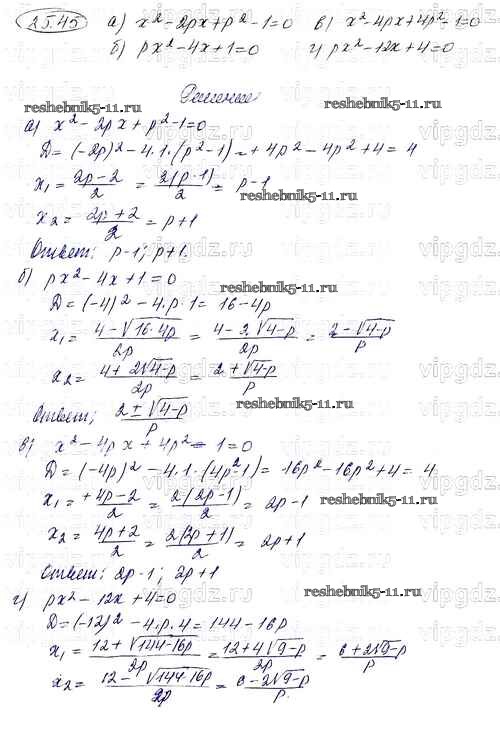 25.45 а) x² - 2px + p² - 1 = 0 в) x² - 4px + 4p² - 1 = 0
б) px² - 4x + 1 = 0 г) px² - 12x + 4 = 0
Решение
reshebnik5-11.ru reshebnik5-11.ru
а) x² - 2px + p² - 1 = 0
D = (-2p)² - 4·1·(p² - 1) = +4p² - 4p² + 4 = 4
x₁ = (2p - 2)/2 = 2(p - 1)/2 = p - 1
reshebnik5-11.ru
x₂ = (2p + 2)/2 = p + 1
Ответ: p - 1; p + 1.
б) px² - 4x + 1 = 0
reshebnik5-11.ru
D = (-4)² - 4·p·1 = 16 - 4p
x₁ = (4 - √(16-4p))/2p = (4 - 2√(4-p))/2p = (2 - √(4-p))/p
x₂ = (4 + 2√(4-p))/2p = (2 + √(4-p))/p
Ответ; (2 ± √(4-p))/p
reshebnik5-11.ru
в) x² - 4px + 4p² - 1 = 0
D = (-4p)² - 4·1·(4p² 1) = 16p² - 16p² + 4 = 4
x₁ = (+4p - 2)/2 = 2(2p - 1)/2 = 2p - 1
reshebnik5-11.ru
x₂ = (4p + 2)/2 = 2(2p + 1)/2 = 2p + 1
Ответ: 2p - 1; 2p + 1
reshebnik5-11.ru
г) px² - 12x + 4 = 0
D = (-12)² - 4·p·4 = 144 - 16p
x₁ = (12 + √(144-16p))/2p = (12 + 4√(9-p))/2p = (6 + 2√(9-p))/p
x₂ = (12 - √(144-16p))/2p = (6 - 2√(9-p))/p
reshebnik5-11.ru